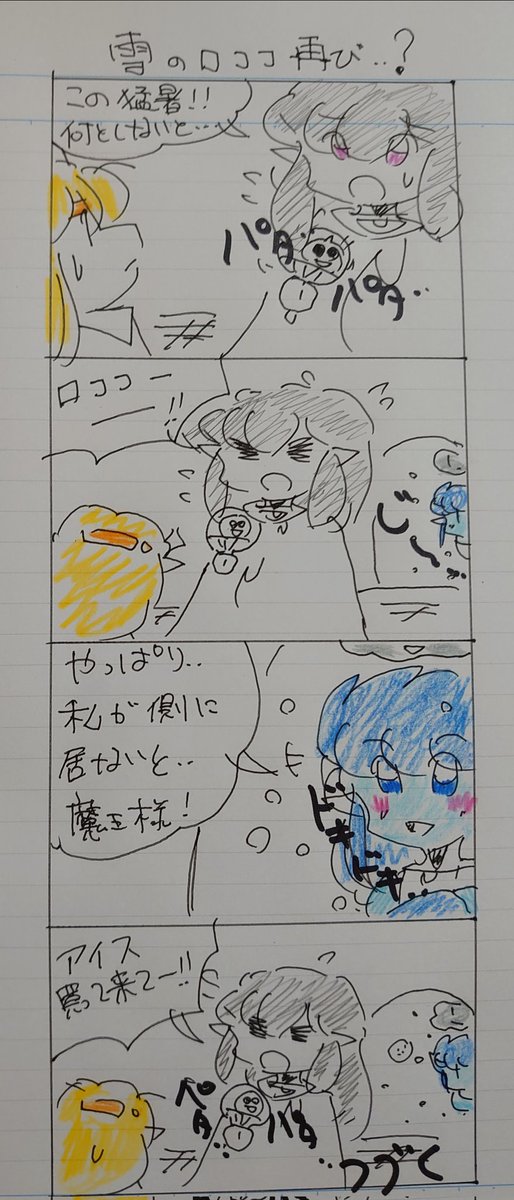 雪のロココ再び‥?
この猛暑!!
何としないと‥
パタ‥
パタ‥
ロココー
ー!!
じ〜‥
やっぱり‥
私が側に
居ないと‥
魔王様!
ドキ
ドキ‥
アイス
買って来てー!!
パタ
パタ
つづく